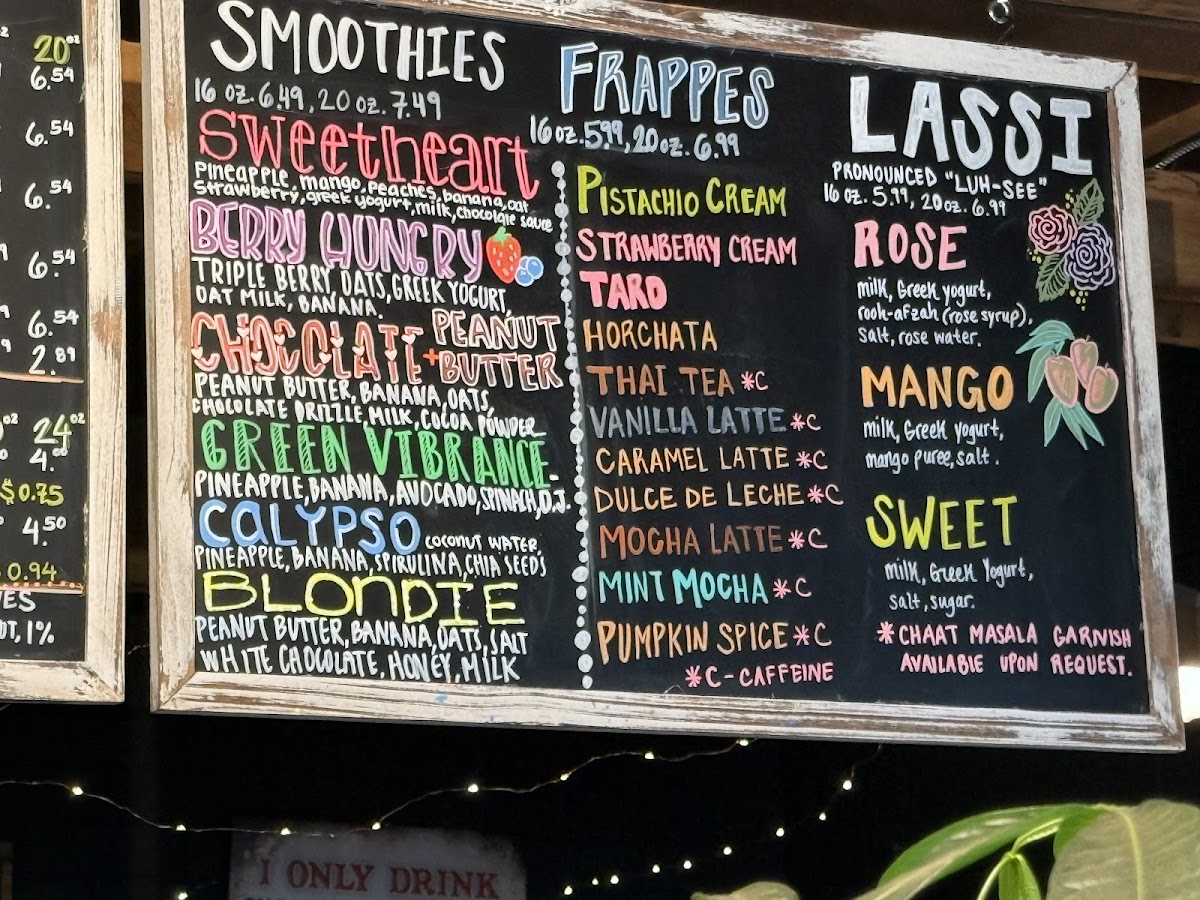 20oz
6.54
6.54
6.54
6.54
6.54
2.89
24oz
4.00
$0.75
4.50
0.94
OT, 1%
SMOOTHIES
16 oz. 6.49, 20 oz. 7.49
Sweetheart
Pineapple, mango, peaches, banana, oat
strawberry, greek yogurt, milk, chocolate sauce
BERRY HUNGRY
TRIPLE BERRY, OATS, GREEK YOGURT,
OAT MILK, BANANA.
CHOCOLATE + PEANUT
BUTTER
PEANUT BUTTER, BANANA, OATS,
CHOCOLATE DRIZZLE, MILK, COCOA POWDER
GREEN VIBRANCE-
PINEAPPLE, BANANA, AVOCADO, SPINACH, O.J.
CALYPSO COCONUT WATER,
PINEAPPLE, BANANA, SPIRULINA, CHIA SEEDS
BLONDIE
PEANUT BUTTER, BANANA, OATS, SALT
WHITE CHOCOLATE, HONEY, MILK
FRAPPES
16 oz. 5.99, 20 oz. 6.99
PISTACHIO CREAM
STRAWBERRY CREAM
TARO
HORCHATA
THAI TEA *C
VANILLA LATTE *C
CARAMEL LATTE *C
DULCE DE LECHE *C
MOCHA LATTE *C
MINT MOCHA *C
PUMPKIN SPICE *C
*C - CAFFEINE
LASSI
PRONOUNCED "LUH-SEE"
16 oz. 5.99, 20 oz. 6.99
ROSE
milk, Greek yogurt,
rooh-afzah (rose syrup),
salt, rose water.
MANGO
milk, Greek yogurt,
mango puree, salt.
SWEET
milk, Greek Yogurt,
salt, sugar.
*CHAAT MASALA GARNISH
AVAILABLE UPON REQUEST.
I ONLY DRINK